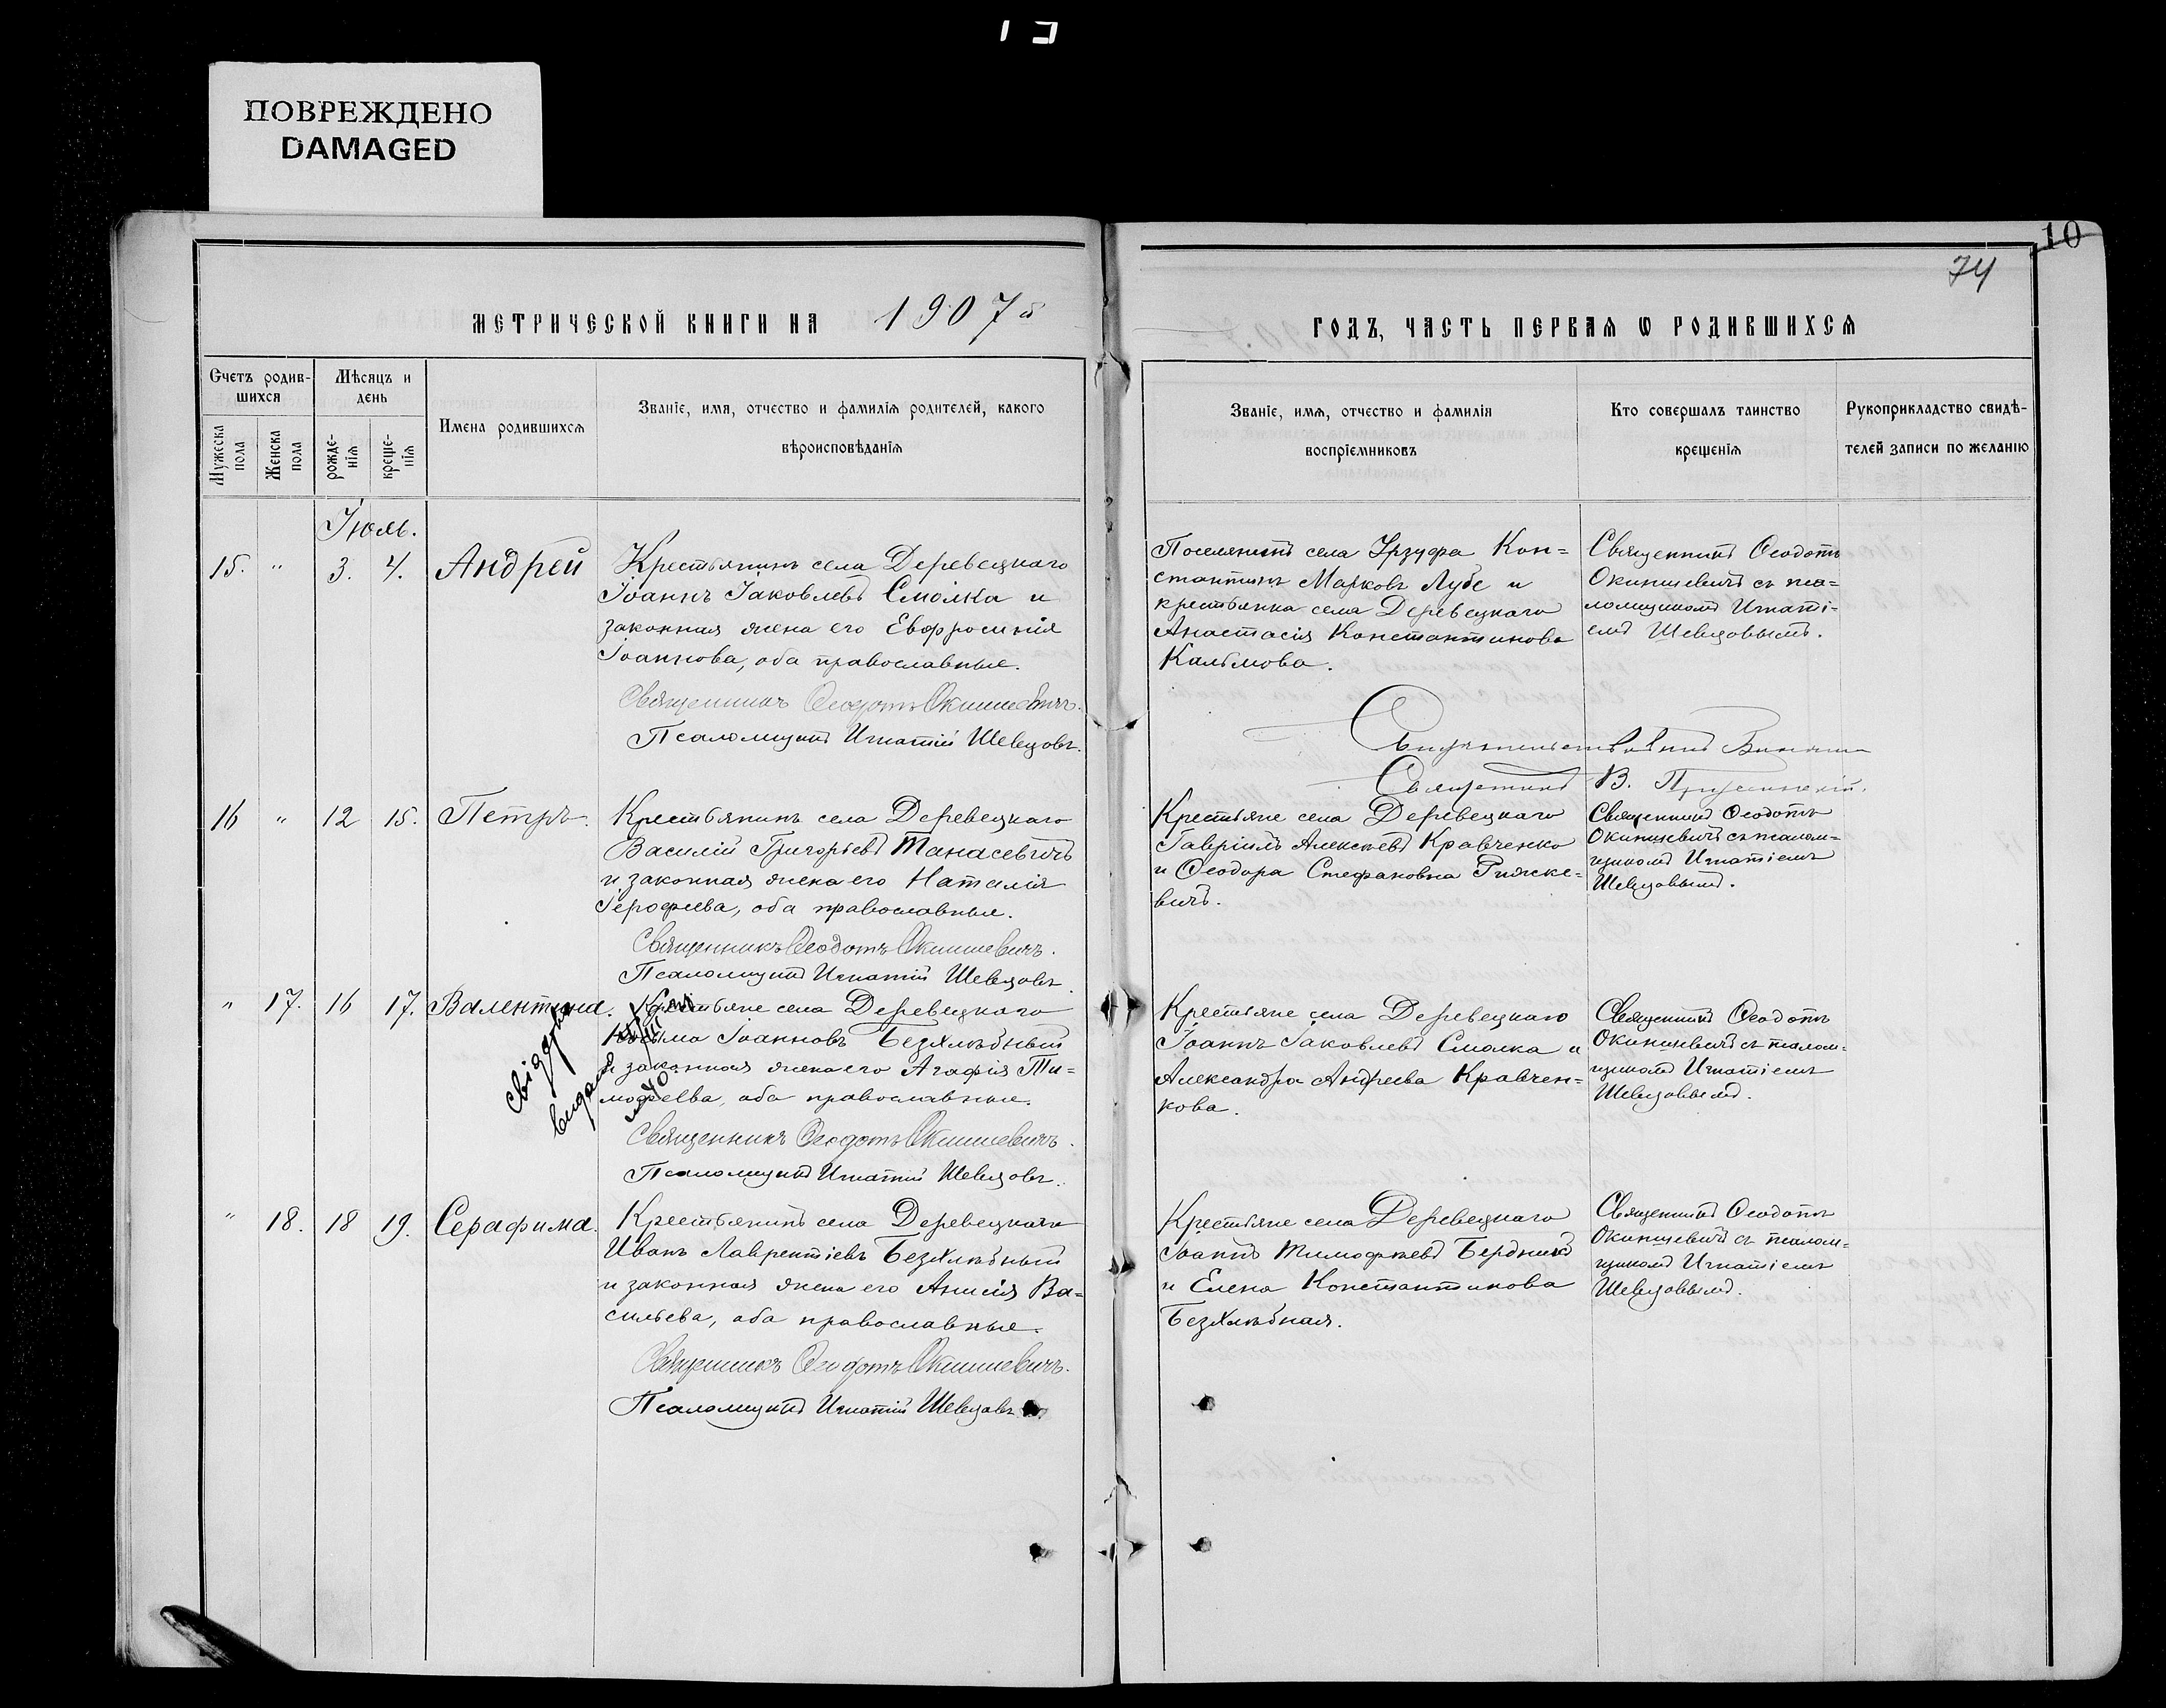 ПОВРЕЖДЕНО
DAMAGED
10
74
МЕТРИЧЕСКОЙ КНИГИ НА 1907й
ГОДЪ, ЧАСТЬ ПЕРВАЯ Ѡ РОДИВШИХСѦ
Счетъ родив-
шихся
Мѣсяцъ и
день
Мужеска
пола
Женска
пола
рожде-
нія
креще-
нія
Имена родившихсѧ
Званіе, имя, отчество и фамилія родителей, какого
вѣроисповѣданія
Званіе, имя, отчество и фамилія
воспріемниковъ
Кто совершалъ таинство
крещенія
Рукоприкладство свидѣ-
телей записи по желанію
Іюль.
15. " 3. 4. Андрей
Крестьянинъ села Деревецкаго
Іоаннъ Іаковлевъ Смолка и
законная жена его Евфросинія
Іоаннова, оба православные.
Священникъ Ѳеодотъ Окиншевичъ.
Псаломщикъ Игнатій Шевцовъ.
Поселянинъ села Урзуфа Кон=
стантинъ Марковъ Лубе и
крестьянка села Деревецкаго
Анастасія Константинова
Кальмова.
Священникъ Ѳеодотъ
Окиншевичъ съ пса=
ломщикомъ Игнаті=
емъ Шевцовымъ.
Священникъ В.
16 " 12 15. Петръ.
Крестьянинъ села Деревецкаго
Василій Григорьевъ Танасевичъ
и законная жена его Наталія
Іерофеева, оба православные.
Священникъ Ѳеодотъ Окиншевичъ.
Псаломщикъ Игнатій Шевцовъ.
Крестьяне села Деревецкаго
Гавріилъ Алексѣевъ Кравченко
и Ѳеодора Стефановна Ряжске=
вичъ.
Священникъ Ѳеодотъ
Окиншевичъ съ псалом=
щикомъ Игнатіемъ
Шевцовымъ.
" 17. 16 17. Валентина.
Крестьяне села Деревецкаго
Косьма Іоанновъ Безхлѣбный
и законная жена его Агафія Ти=
мофеева, оба православные.
Священникъ Ѳеодотъ Окиншевичъ.
Псаломщикъ Игнатій Шевцовъ.
Крестьяне села Деревецкаго
Іоаннъ Іаковлевъ Смолка и
Александра Андреева Кравчен=
кова.
Священникъ Ѳеодотъ
Окиншевичъ съ псалом=
щикомъ Игнатіемъ
Шевцовымъ.
" 18. 18 19. Серафима.
Крестьянинъ села Деревецкаго
Иванъ Лаврентіевъ Безхлѣбный
и законная жена его Анисія Ва=
сильева, оба православные.
Священникъ Ѳеодотъ Окиншевичъ.
Псаломщикъ Игнатій Шевцовъ
Крестьяне села Деревецкаго
Іоаннъ Тимофѣевъ Бердникъ
и Елена Константинова
Безхлѣбная.
Священникъ Ѳеодотъ
Окиншевичъ съ псалом=
щикомъ Игнатіемъ
Шевцовымъ.